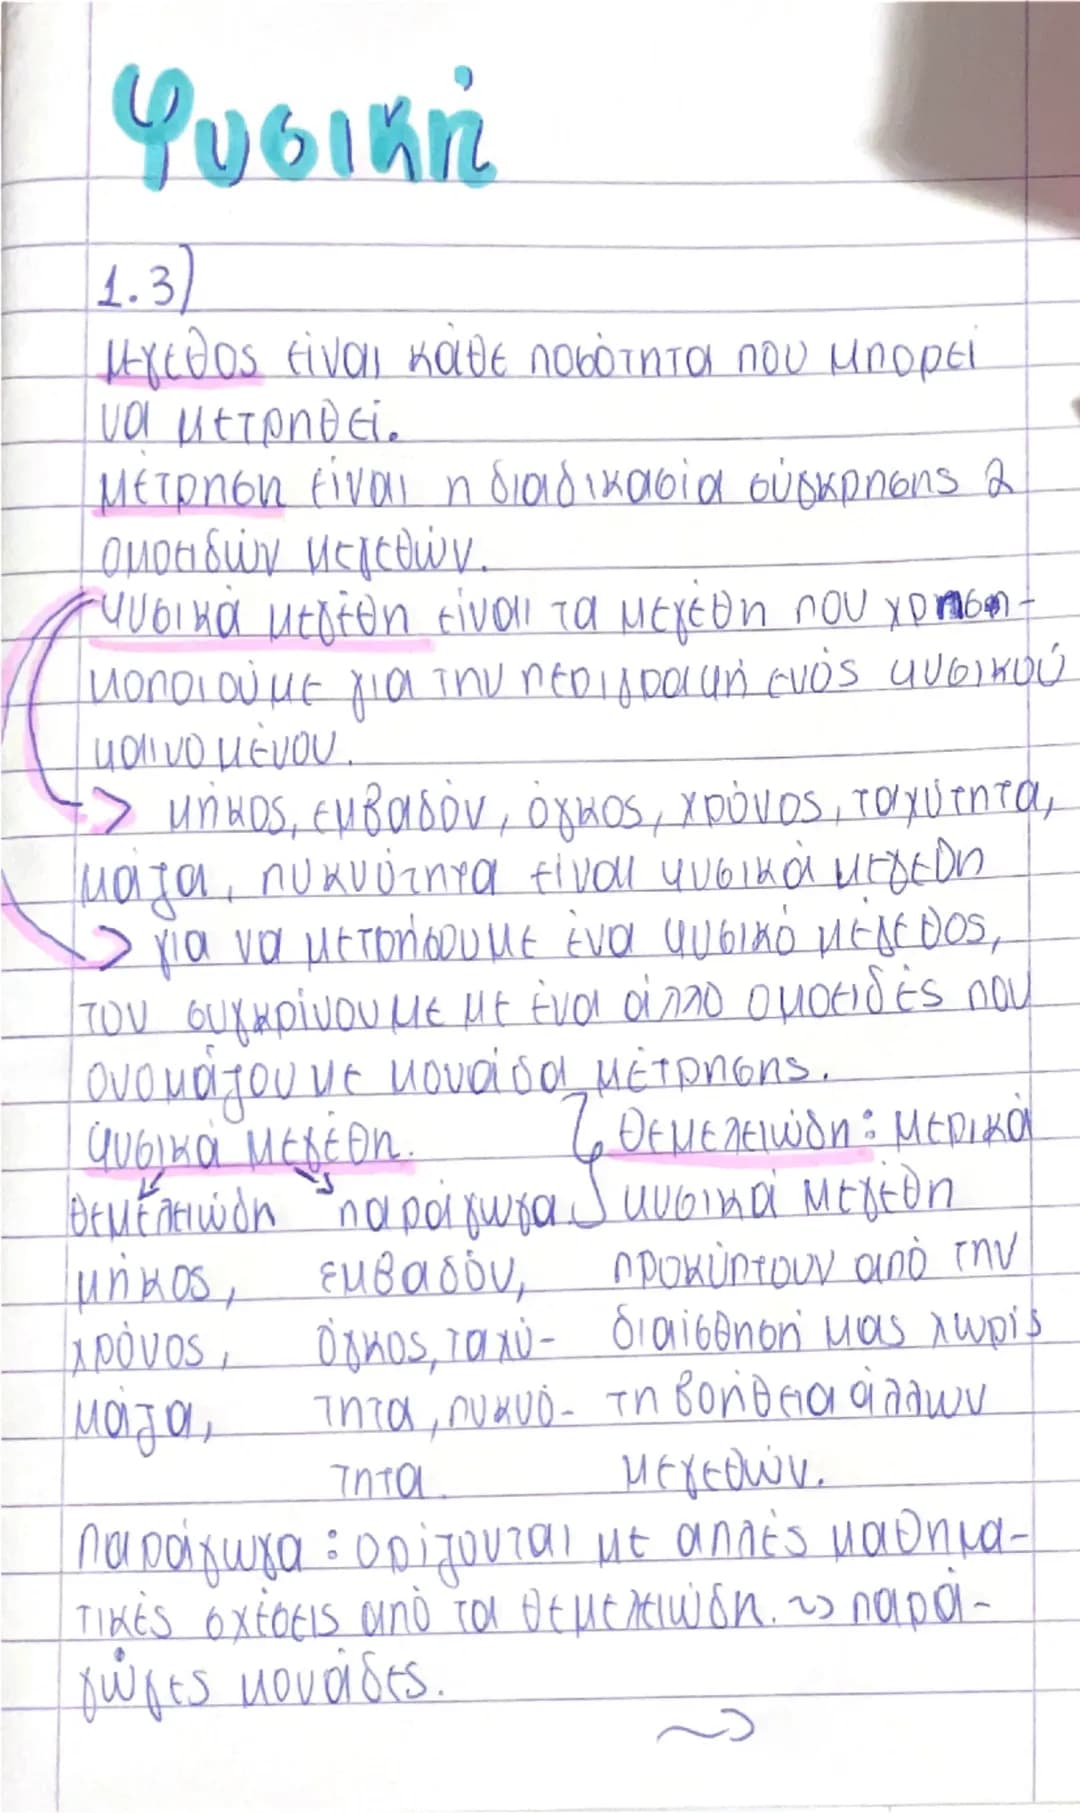 Φυσική
1.3)
Μέγεθος είναι κάθε ποσότητα που μπορεί
να μετρηθεί.
Μέτρηση είναι η διαδικασία σύγκρησης 2
ομοειδών μεγεθών.
Φυσικά μεγέθη είναι τα μεγέθη που χρησι-
μοποιούμε για την περιγραφή ενός φυσικού
φαινομένου.
→ μήκος, εμβαδόν, όγκος, χρόνος, ταχύτητα,
μάζα, πυκνότητα είναι φυσικά μεγέθη
→ για να μετρήσουμε ένα φυσικό μέγεθος,
τον συγκρίνουμε με ένα άλλο ομοειδές που
ονομάζουμε μονάδα μέτρησης.
Φυσικά μεγέθη.
θεμελειώδη παράγωγα
μήκος, εμβαδόν,
χρόνος, όγκος, ταχύ-
μάζα, τητα, πυκνό-
τητα
Θεμελειώδη: μερικά
φυσικά μεγέθη
προκύπτουν από την
διαίσθησή μας χωρίς
τη βοήθεια άλλων
μεγεθών.
Παράγωγα: ορίζονται με απλές μαθημα-
τικές σχέσεις από τα θεμελειώδη. ~> παρά-
γωγες μονάδες.
~>